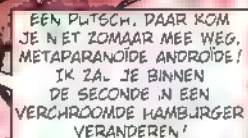 EEN PUTSCH. DAAR KOM
JE NIET ZOMAAR MEE WEG,
METAPARANOÏDE ANDROÏDE!
IK ZAL JE BINNEN
DE SECONDE IN EEN
VERCHROOMDE HAMBURGER
VERANDEREN!